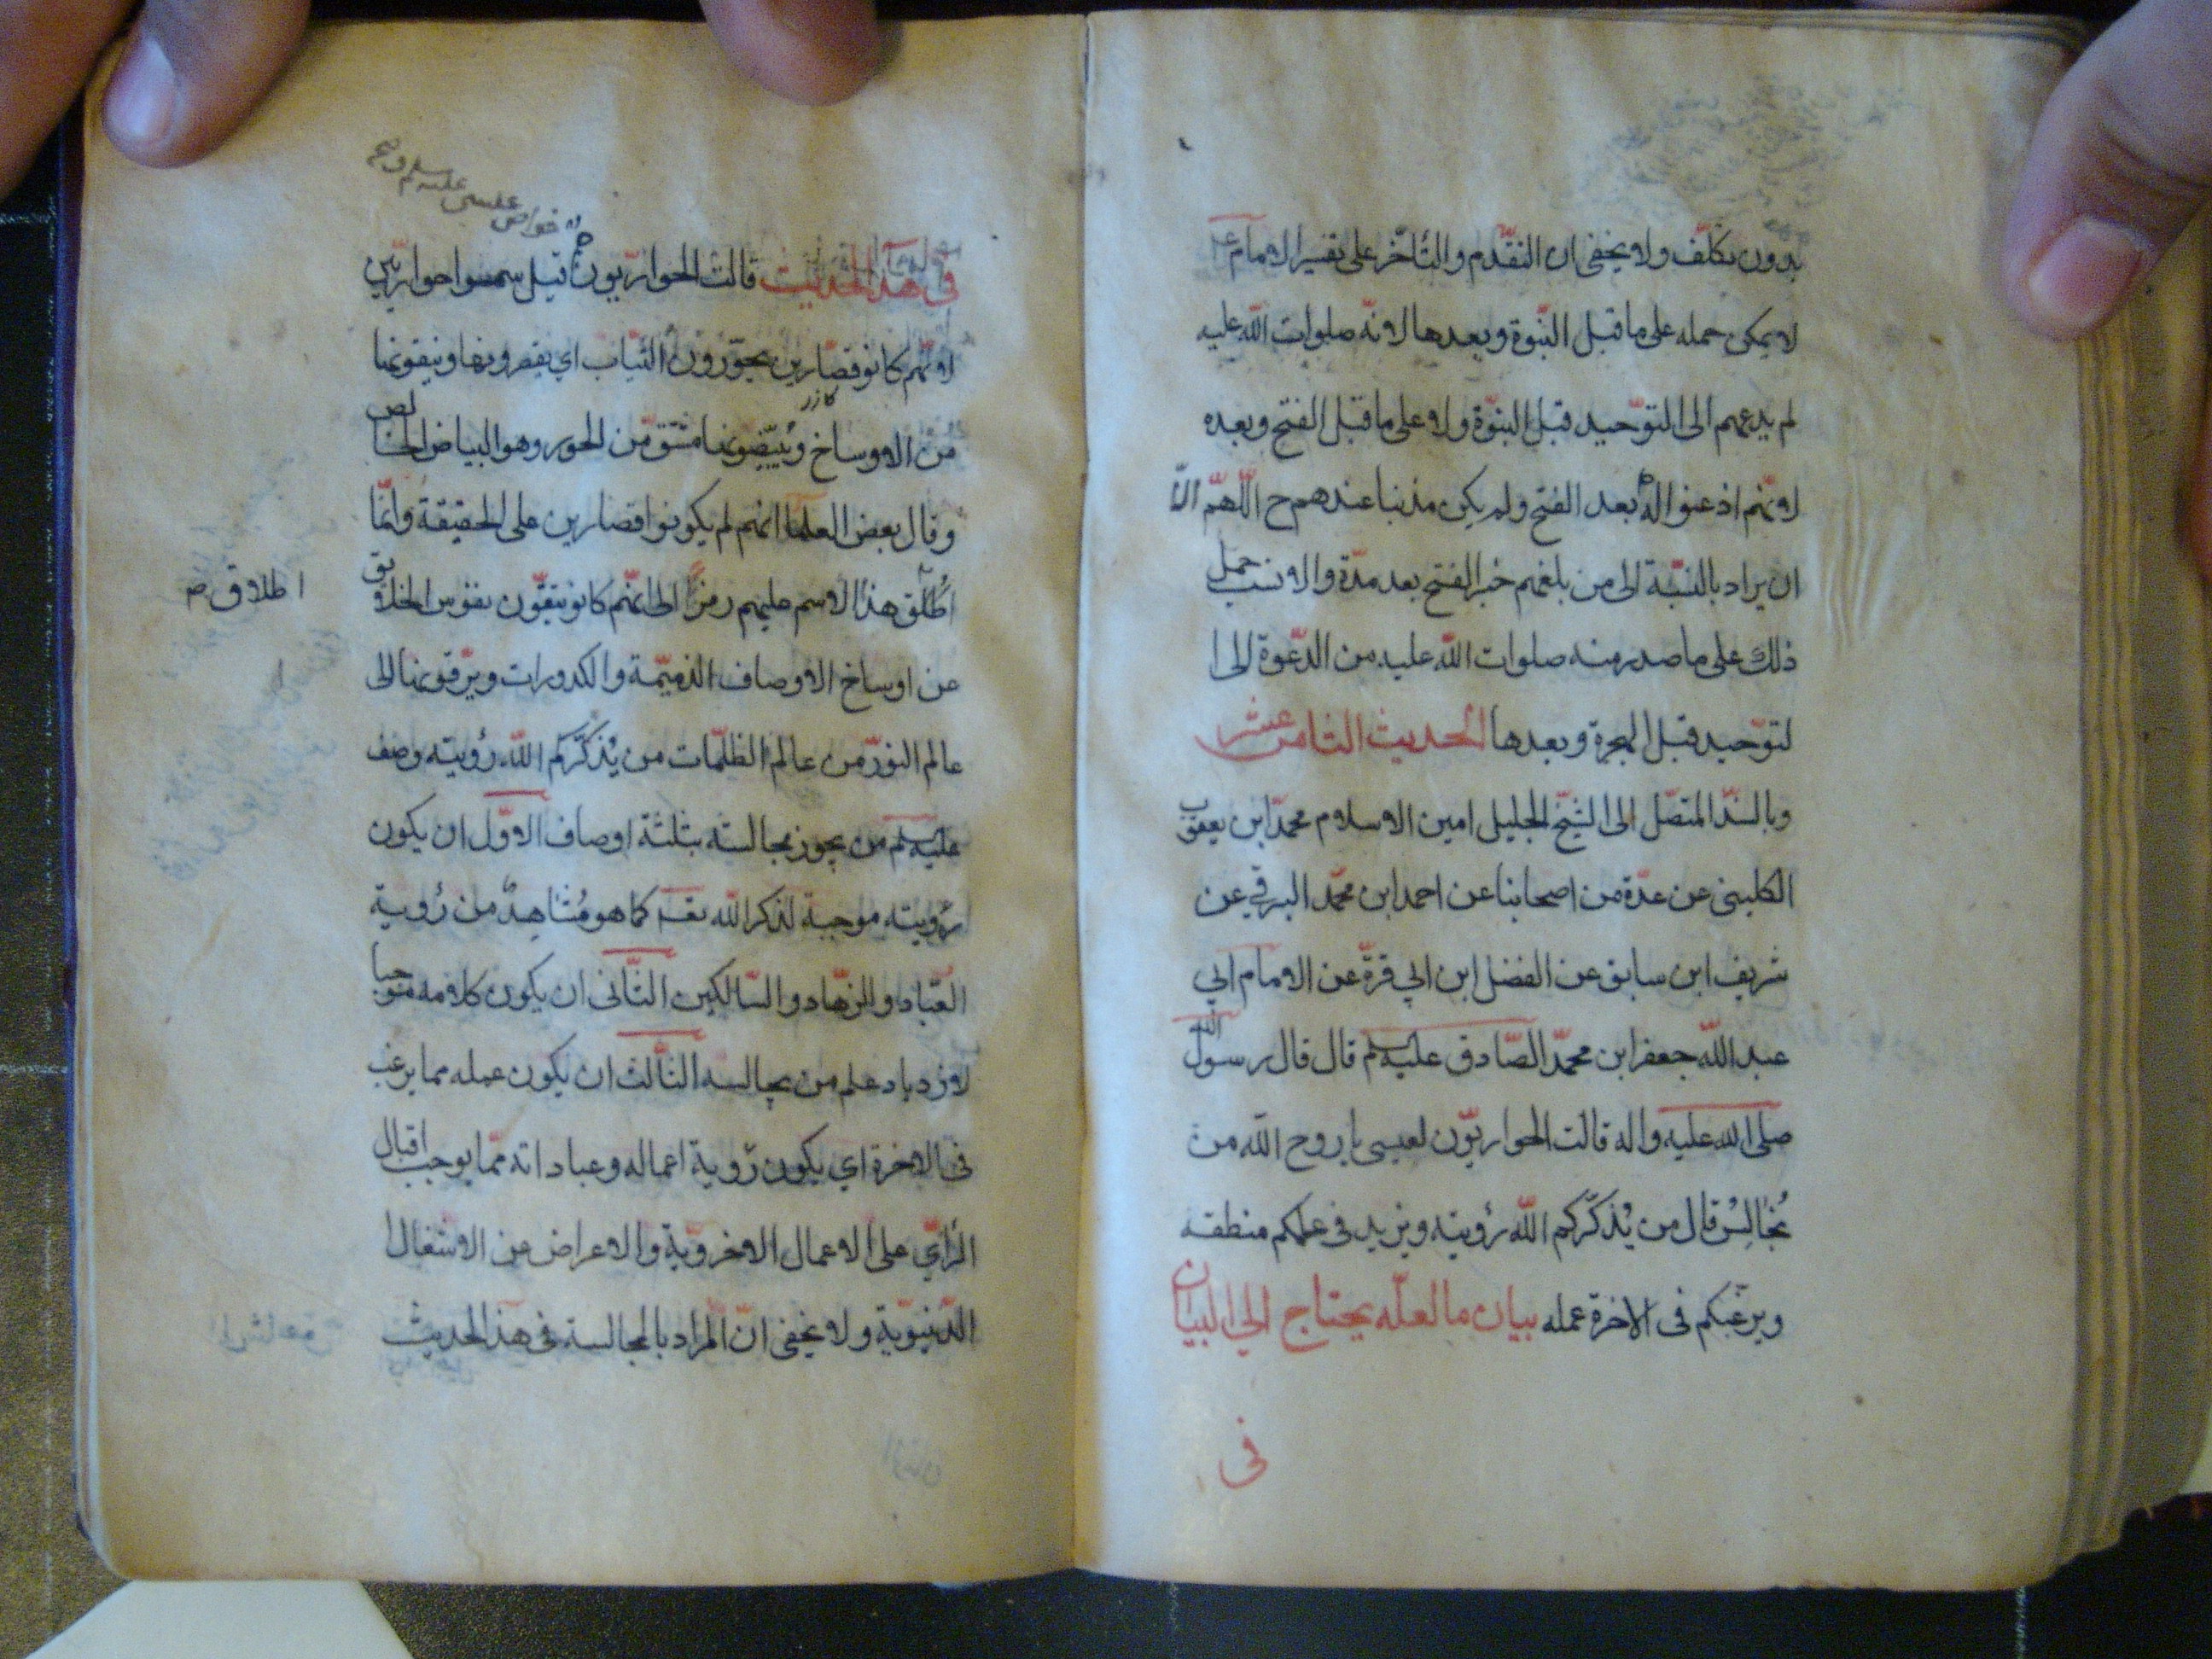 بدون تكلّف ولا يخفى ان التقدّم والتأخّر على تفسير الامام ع
لا يمكن حمله على ما قبل النبّوة وبعدها لانّه صلوات اللّه عليه
لم يدعهم الى التوّحيد قبل النبّوة ولا على ما قبل الفتح وبعده
لانّهم اذعنوا له بعد الفتح ولم يكن مذنبا عندهم ح اللّهمّ الّا
ان يراد بالنسّبة الى من بلغهم خبر الفتح بعد مدّة والانسب حمل
ذلك على ما صدر منه صلوات اللّه عليه من الدّعوة الى ا
لتوّحيد قبل الهجرة وبعدها الحديث الثامن عشر
وبالسنّد المتصّل الى الشيّخ الجليل امين الاسلام محمدّ ابن يعقوب
الكلينى عن عدّة من اصحابنا عن احمد ابن محمّد البرقي عن
شريف ابن سابق عن الفضل ابن ابي قرّة عن الامام ابي
عبد اللّه جعفر ابن محمّد الصّادق عليه سلم قال قال رسول اللّه
صلى اللّه عليه واله قالت الحواريّون لعيسى يا روح اللّه من
نُجالِسُ قال من يُذكّركم اللّه رؤيته ويزيد فى علمكم منطقه
ويرغّبكم فى الاخرة عمله بيان ما لعلّه يحتاج الى البيان
فى
خواص عيسى عليه سلم
فى هذا الحديث قالت الحواريّون قيل سموا حواريّين
لانّهم كانو قصّارين يحوّرون الثيّاب اي يقصرونها وينقونها
كازر
من الاوساخ ويُبيّضونها مشتقّ من الحور وهو البياض الخالص
وقال بعض العلما انهم لم يكونوا قصارين على الحقيقة وانّما
اُطلق هذا الاسم عليهم رمزاً الى انّهم كانو ينقّون نفوس الخلايق
اطلاق ص
عن اوساخ الاوصاف الذميّمة والكدورات ويرّقونها الى
عالم النورّ من عالم الظلّمات من يُذكّركم اللّه رؤيته وصف
عليه سلم من يجوز مجالسته بثلثة اوصاف الاوّل ان يكون
رؤيته موجبة لذكر اللّه تعه كما هو مُشاهدٌ من رُوية
العبّاد والزهّاد والسّالكين الثّانى ان يكون كلامه موجبا
لازدياد علم من يجالسه الثّالث ان يكون عمله مما يرغب
فى الاخرة اي يكون رّوية اعماله وعباداته ممّا يوجب اقبال
الرّايّ على الاعمال الاخرويّة والاعراض عن الاشغال ا
لدّنيوّية ولا يخفى انّ المراد بالمجالسة فى هذ الحديث